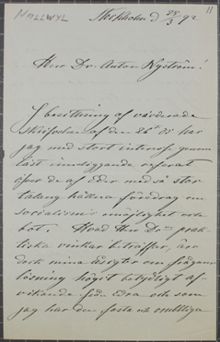 HALLWYL
11
Stockholm d 28/3 92
Herr Dr. Anton Nyström!
I besittning af värderade
skrifvelsen af den 26 ds har
jag med stort intresse genom
läst inneliggande referat
öfver de af Eder med så stor
talang hållna föredrag om
socialismens möjlighet och
hot. Hvad Herr Drs prak
tiska vinkar beträffar, äro
dock mina åsigter om frågans
lösning högst betydligt af
vikande från Edra och som
jag har den fasta och